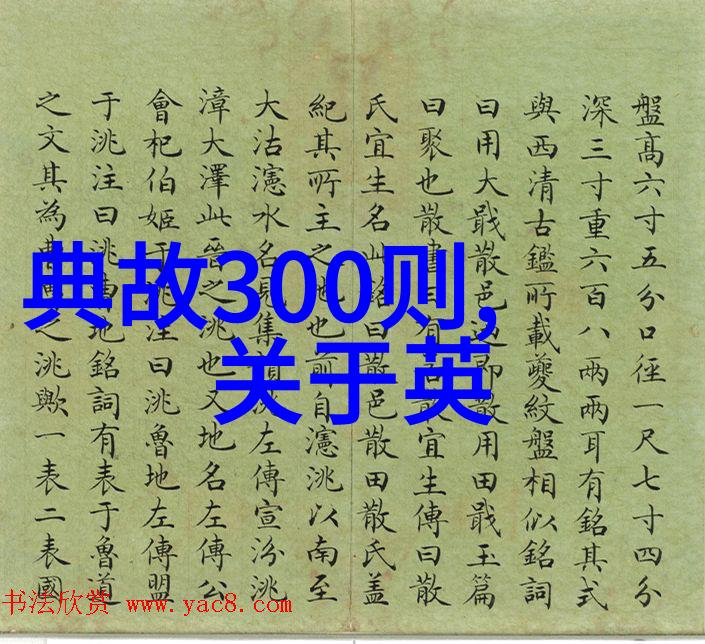 盤高六寸五分口徑一尺七寸四分
深三寸重六百八兩兩耳有銘其式
與西清古鑑所載夔紋盤相似銘詞
曰用大戢散邑迺即散用田戢玉篇
曰聚也散書曰有若散宜生傳曰散
氏宜生名此銘曰散邑散田散氏蓋
紀其所主之地也前自瀗洮以南至
大沽瀗水名見集韻洮左傳宣汾洮
漳大澤此晉之洮也又地名左傳公
會杞伯姬于洮注曰洮魯地左傳盟
于洮注曰洮地銘詞有表于魯道
之文其為之洮歟一表二表國
典故300则,
关于英
书法欣赏 www.yac8.com